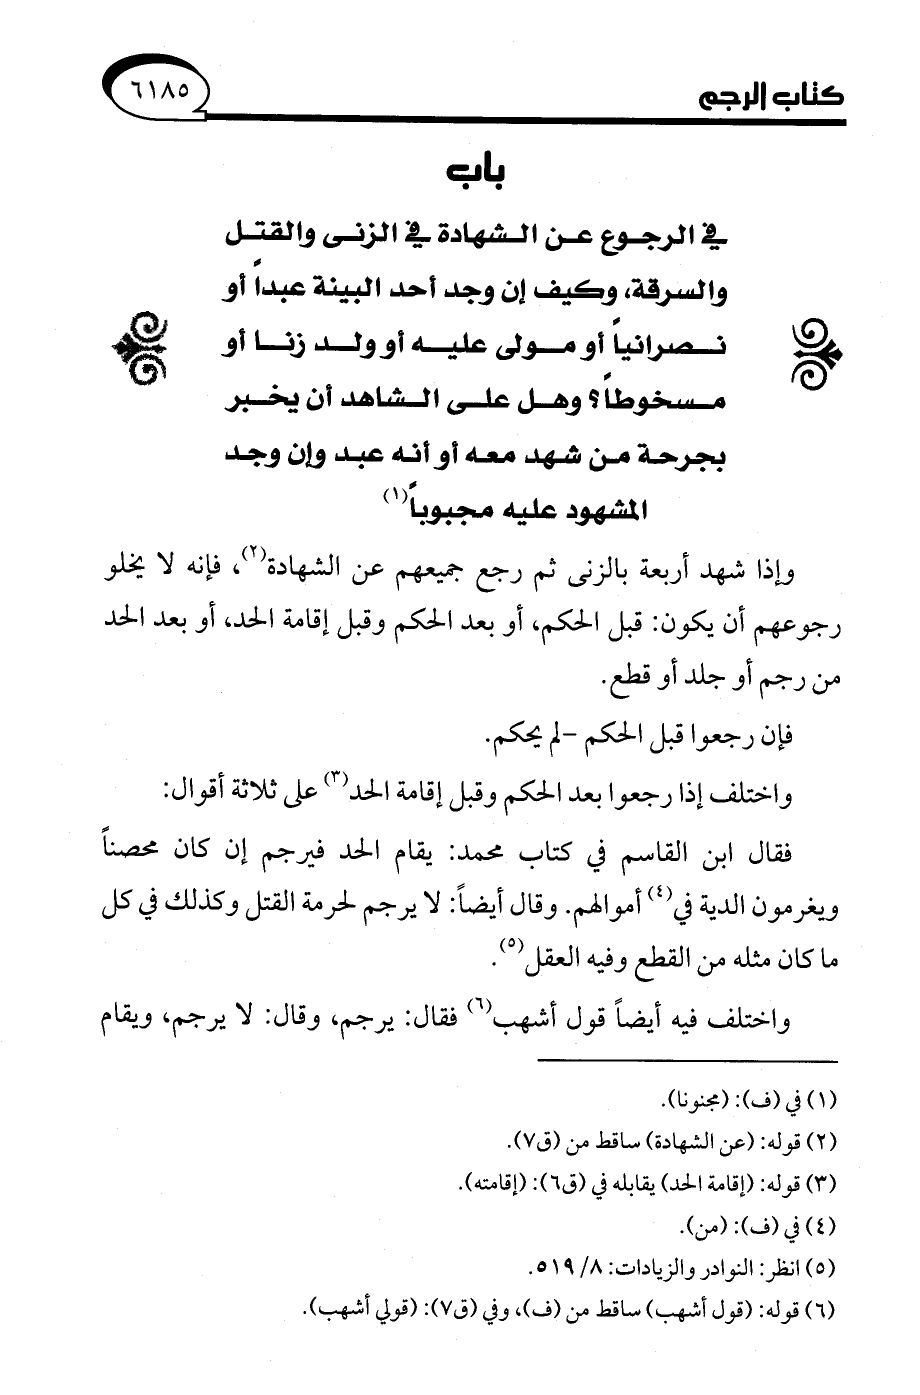 كتاب الرجم
٦١٨٥
باب
في الرجوع عن الشهادة في الزنى والقتل
والسرقة، وكيف إن وجد أحد البينة عبداً أو
نصرانياً أو مولى عليه أو ولد زنا أو
مسخوطاً؟ وهل على الشاهد أن يخبر
بجرحة من شهد معه أو أنه عبد وإن وجد
المشهود عليه مجبوباً(١)
وإذا شهد أربعة بالزنى ثم رجع جميعهم عن الشهادة(٢)، فإنه لا يخلو
رجوعهم أن يكون: قبل الحكم، أو بعد الحكم وقبل إقامة الحد، أو بعد الحد
من رجم أو جلد أو قطع.
فإن رجعوا قبل الحكم -لم يحكم.
واختلف إذا رجعوا بعد الحكم وقبل إقامة الحد(٣) على ثلاثة أقوال:
فقال ابن القاسم في كتاب محمد: يقام الحد فيرجم إن كان محصناً
ويغرمون الدية في(٤) أموالهم. وقال أيضاً: لا يرجم لحرمة القتل وكذلك في كل
ما كان مثله من القطع وفيه العقل(٥).
واختلف فيه أيضاً قول أشهب(٦) فقال: يرجم، وقال: لا يرجم، ويقام
(١) في (ف): (مجنونا).
(٢) قوله: (عن الشهادة) ساقط من (ق٧).
(٣) قوله: (إقامة الحد) يقابله في (ق٦): (إقامته).
(٤) في (ف): (من).
(٥) انظر: النوادر والزيادات: ٨/ ٥١٩.
(٦) قوله: (قول أشهب) ساقط من (ف)، وفي (ق٧): (قولي أشهب).